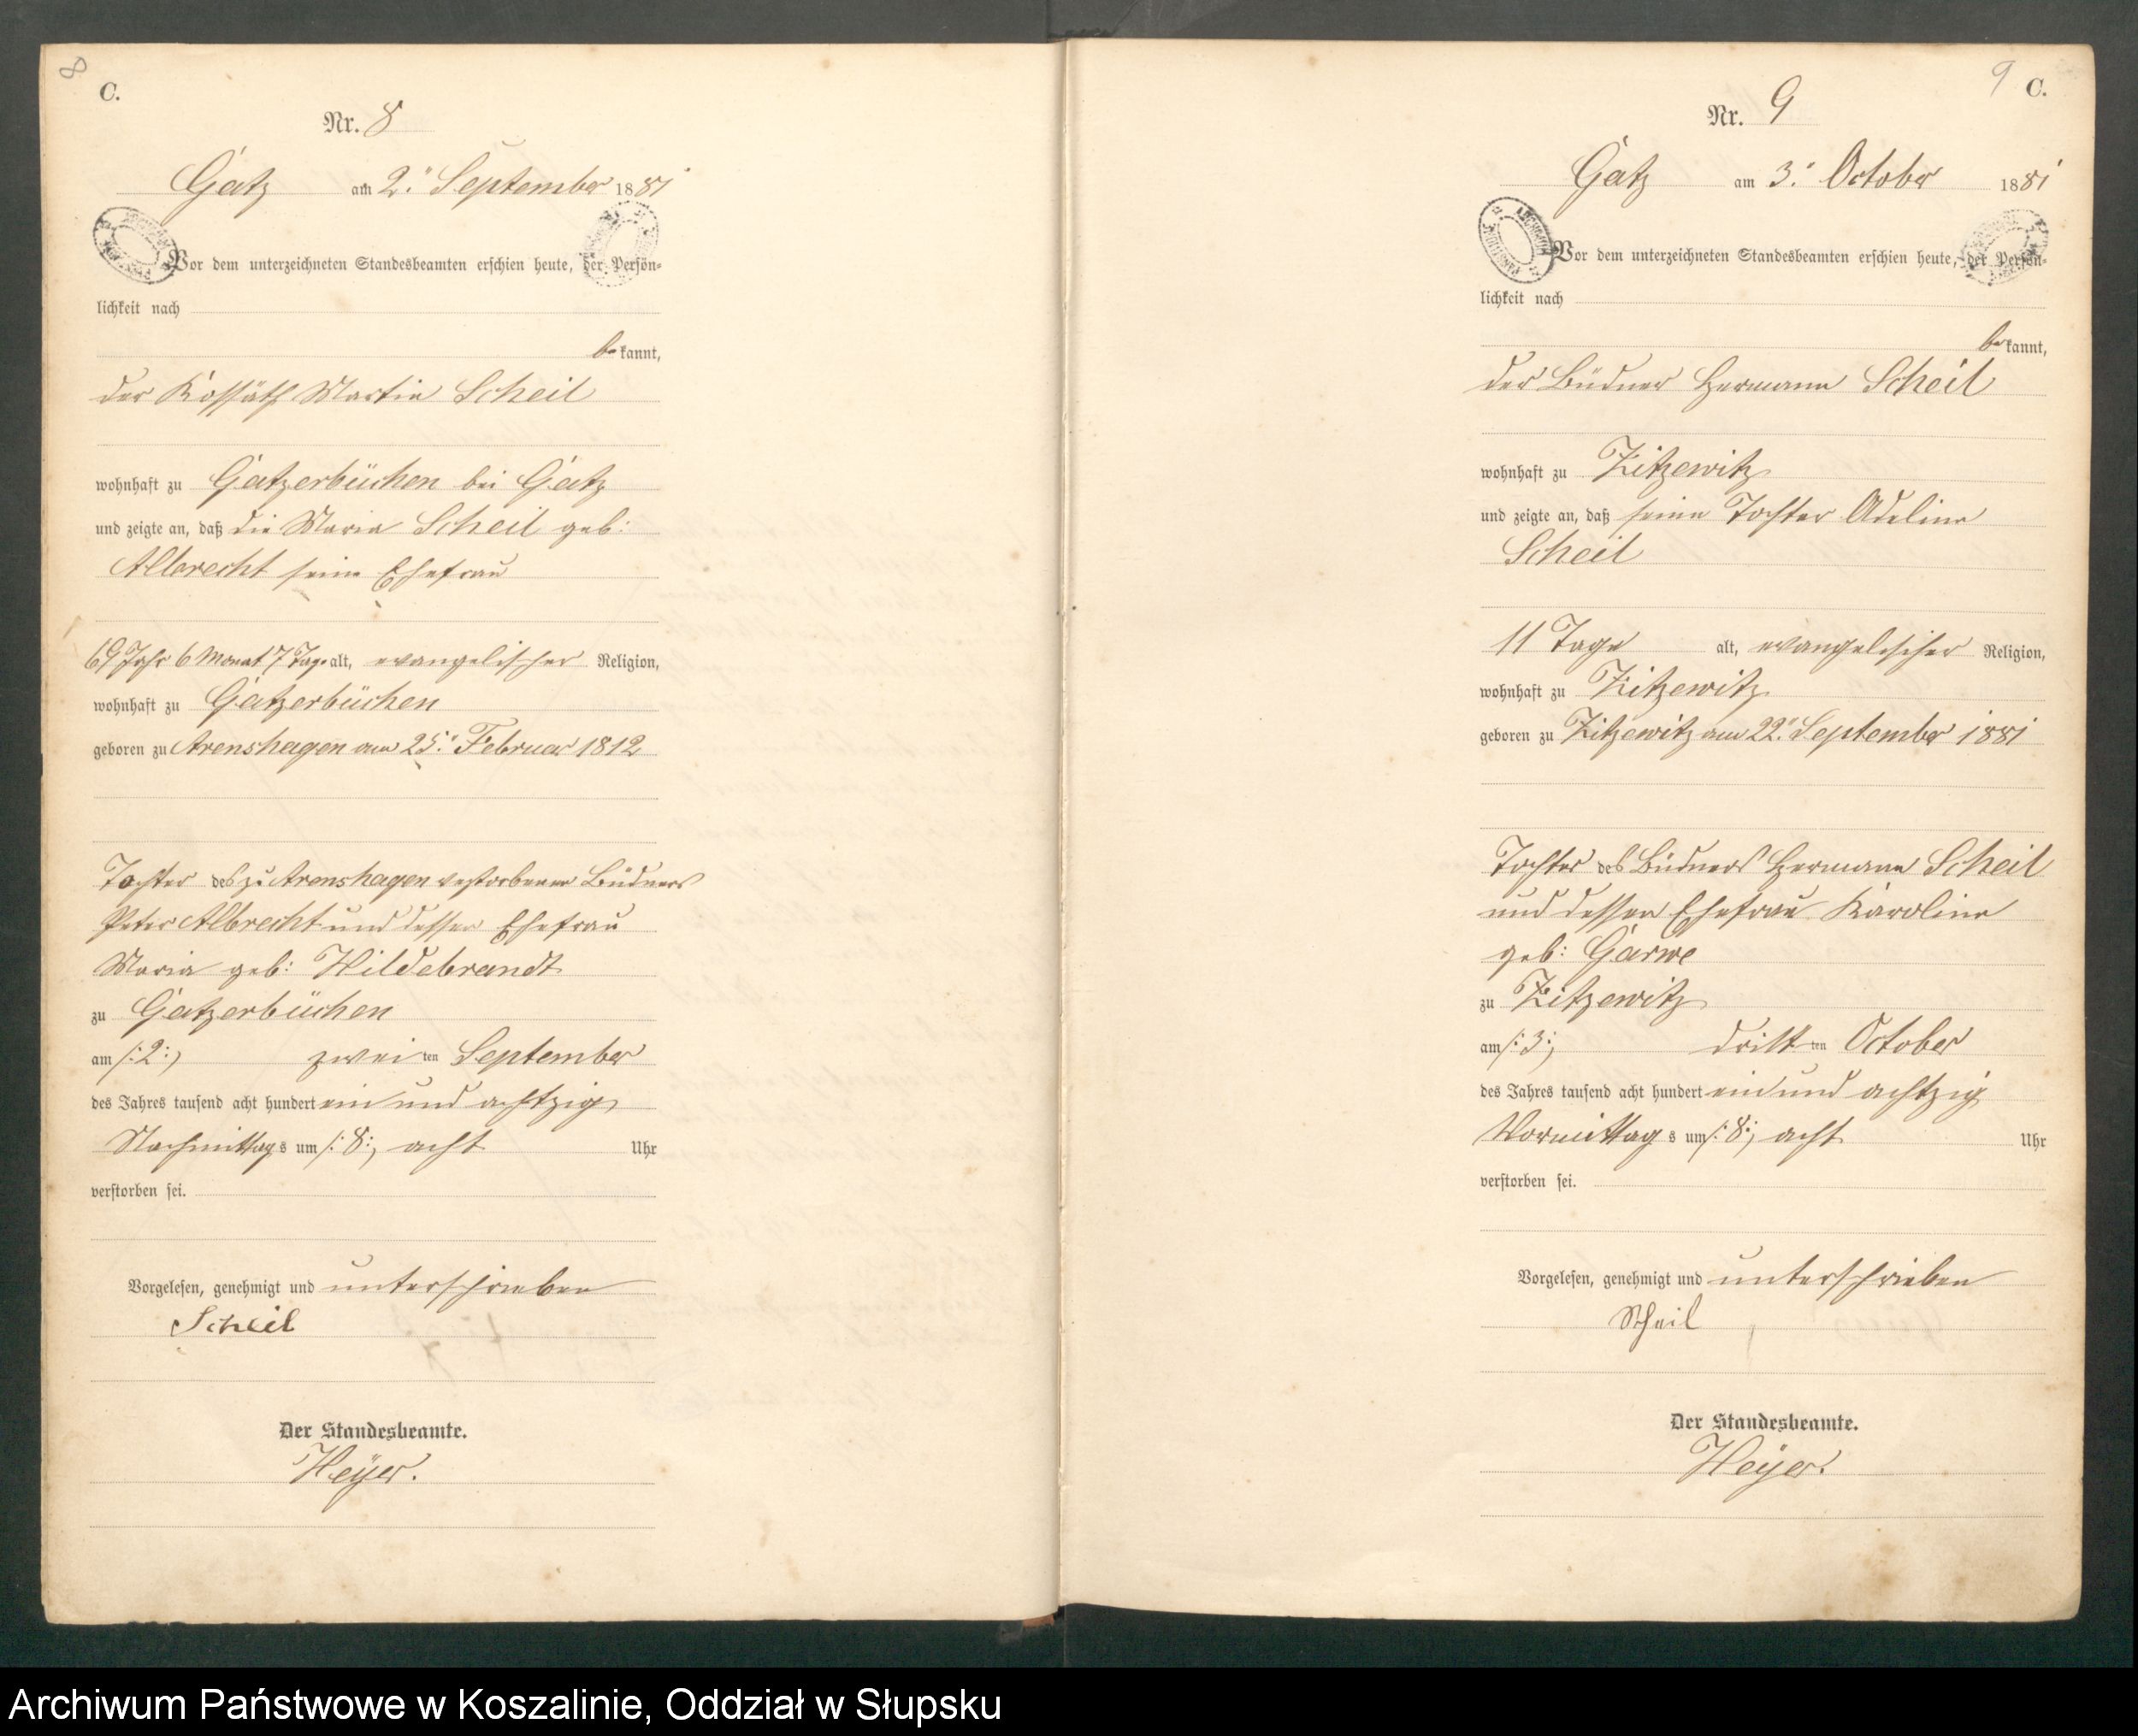 8
C.
Nr. 8
Gatz am 2. September 1881
Vor dem unterzeichneten Standesbeamten erschien heute, der Persön-
lichkeit nach
bekannt,
der Kossäth Martin Scheil
wohnhaft zu Gatzerbüchen bei Gatz
und zeigte an, daß die Maria Scheil geb:
Albrecht seine Ehefrau
69 Jahr 6 Monat 7 Tage alt, evangelischer Religion,
wohnhaft zu Gatzerbüchen
geboren zu Arenshagen am 25. Februar 1812
Tochter des zu Arenshagen verstorbenen Büdners
Peter Albrecht und dessen Ehefrau
Maria geb: Hildebrandt
zu Gatzerbüchen
am /:2:/ zweiten September
des Jahres tausend acht hundert ein und achtzig
Nachmittags um /:8:/ acht Uhr
verstorben sei.
Vorgelesen, genehmigt und unterschrieben
Scheil
Der Standesbeamte.
Heyer.
9 C.
Nr. 9
Gatz am 3. October 1881
Vor dem unterzeichneten Standesbeamten erschien heute, der Persön-
lichkeit nach
bekannt,
der Büdner Hermann Scheil
wohnhaft zu Zitzewitz
und zeigte an, daß seine Tochter Adeline
Scheil
11 Tage alt, evangelischer Religion,
wohnhaft zu Zitzewitz
geboren zu Zitzewitz am 22. September 1881
Tochter des Büdners Hermann Scheil
und dessen Ehefrau Karoline
geb: Garwe
zu Zitzewitz
am /:3:/ dritten October
des Jahres tausend acht hundert ein und achtzig
Vormittags um /:8:/ acht Uhr
verstorben sei.
Vorgelesen, genehmigt und unterschrieben
Scheil
Der Standesbeamte.
Heyer.
Archiwum Państwowe w Koszalinie, Oddział w Słupsku